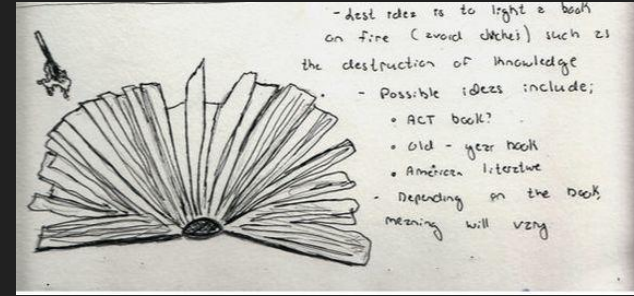 - Last idea is to light a book
on fire (avoid cliches) such as
the destruction of knowledge
- Possible ideas include;
• ACT book?
• Old - year book
• American literature
- Depending on the book,
meaning will vary